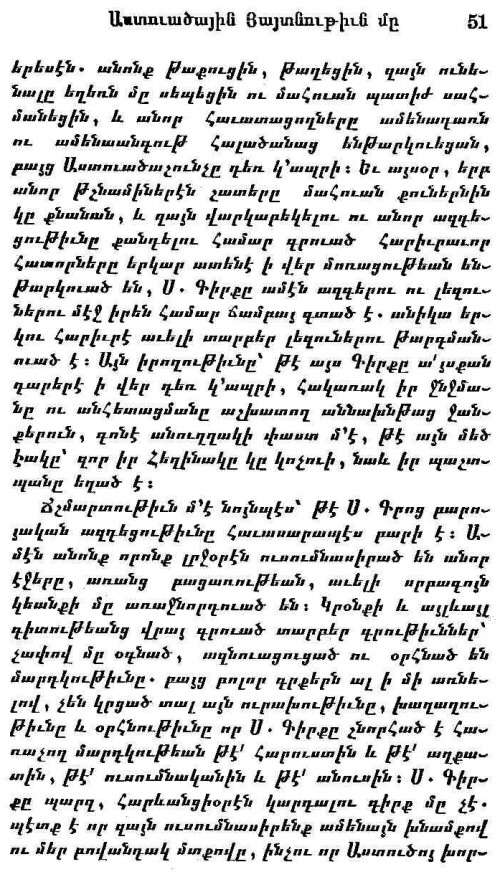 Աստուածային Յայտնութիւն մը 51
երեսէն. անոնք թաքուցին, թաղեցին, զայն ունե-
նալը եղեռն մը սեպեցին ու մահուան պատիժ սահ-
մանեցին, և անոր հաւատացողները ամենադառն
ու ամենաանգութ հալածանաց ենթարկուեցան,
բայց Աստուածաշունչը դեռ կ'ապրի։ Եւ այսօր, երբ
անոր թշնամիներէն շատերը մահուան քուներնին
կը քնանան, և զայն վարկաբեկելու ու անոր ազդե-
ցութիւնը քանդելու համար գրուած հարիւրաւոր
հատորները երկար ատենէ ի վեր մոռացութեան են-
թարկուած են, Ս. Գիրքը ամէն ազգերու ու լեզու-
ներու մէջ իրեն համար ճամբայ գտած է. անիկա եր-
կու հարիւրէ աւելի տարբեր լեզուներու թարգման-
ուած է։ Այն իրողութիւնը՝ թէ այս Գիրքը ա՛յսքան
դարերէ ի վեր դեռ կ'ապրի, հակառակ իր ջնջմա-
նը ու անհետացմանը աշխատող աննախնթաց ջան-
քերուն, գոնէ անուղղակի փաստ մ'է, թէ այն մեծ
Էակը՝ զոր իր Հեղինակը կը կոչուի, նաև իր պաշտ-
պանը եղած է։
Ճշմարտութիւն մ'է նոյնպէս՝ թէ Ս. Գրոց բարո-
յական ազդեցութիւնը հաւասարապէս բարի է։ Ա-
մէն անոնք որոնք լրջօրէն ուսումնասիրած են անոր
էջերը, առանց բացառութեան, աւելի սրբագոյն
կեանքի մը առաջնորդուած են։ Կրօնքի և այլևայլ
գիտութեանց վրայ գրուած տարբեր գրութիւններ՝
չափով մը օգնած, ազնուացուցած ու օրհնած են
մարդկութիւնը. բայց բոլոր գրքերն ալ ի մի առնե-
լով, չեն կրցած տալ այն ուրախութիւնը, խաղաղու-
թիւնը և օրհնութիւնը որ Ս. Գիրքը շնորհած է հա-
ռաչող մարդկութեան թէ՛ հարուստին և թէ՛ աղքա-
տին, թէ՛ ուսումնականին և թէ՛ անուսին։ Ս. Գիր-
քը պարզ, հարևանցիօրէն կարդալու գիրք մը չէ.
պէտք է որ զայն ուսումնասիրենք ամենայն խնամքով
ու մեր բովանդակ մտքովը, ինչու որ Աստուծոյ խոր-